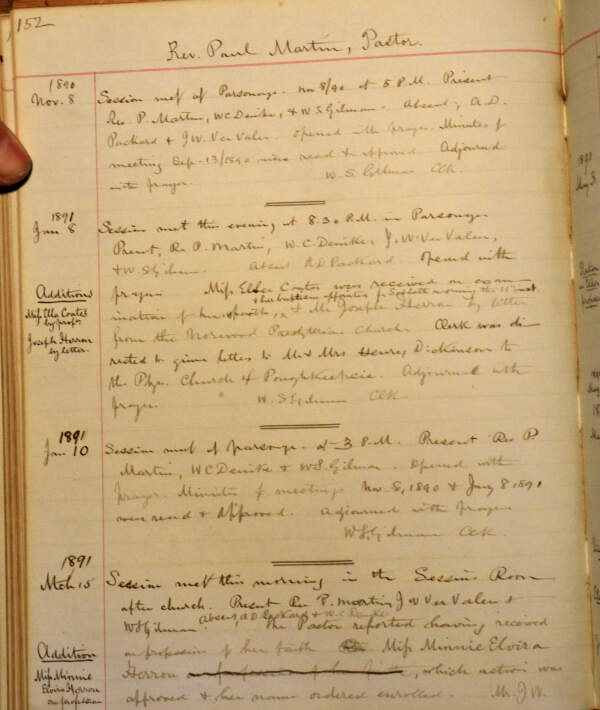 152
Rev. Paul Martin, Pastor.
1890
Nov. 8
Session met at Parsonage Nov 8/90 at 5 P.M. Present
Rev. P. Martin, W.C. Denike, & W.S. Gilman. Absent; A.D.
Packard & J.W. Ver Valen. Opened with prayer Minutes of
meeting Sep. 13/1890 were read & approved Adjourned
with prayer.
W. S. Gilman Clk.
1891
Jan 8
Session met this evening at 8.30 P.M. in Parsonage
Present, Rev P. Martin, W.C. Denike, J.W. Ver Valen,
& W.S. Gilman. Absent A.D. Packard. Opened with
prayer Miss Ella Coates was received on exam
& her baptism appointed for Sabbath morning the 11th inst
ination of her faith, & Mr. Joseph Herron by letter
from the Norwood Presbyterian Church. Clerk was di
rected to given letter to Mr & Mrs. Henry Dickinson to
the Pbyn. Church of Poughkeepsie. Adjourned with
prayer. W. S. Gilman Clk.
Additions
Miss Ella Coates
by profs.
Joseph Herron
by letter.
1891
Jan 10
Session met at parsonage at 3 P.M. Present Rev P.
Martin, W C Denike & W.S. Gilman. Opened with
prayer Minutes of meetings Nov 8, 1890 & Jany 8 1891
were read & approved. Adjourned with prayer
W. S. Gilman Clk.
1891
Mch 15
Session met this morning in the Session Room
after church. Present Rev P. Martin, J W Ver Valen &
Absent, A D Packard & W. C. Denike
W S Gilman. The Pastor reported having received
on profession of her faith Miss Minnie Elvira
Herron on profession of her faith, which action was
approved & her name ordered enrolled. Mr. J.W.
Addition
Miss Minnie
Elvira Herron
on profession
1891
May 3